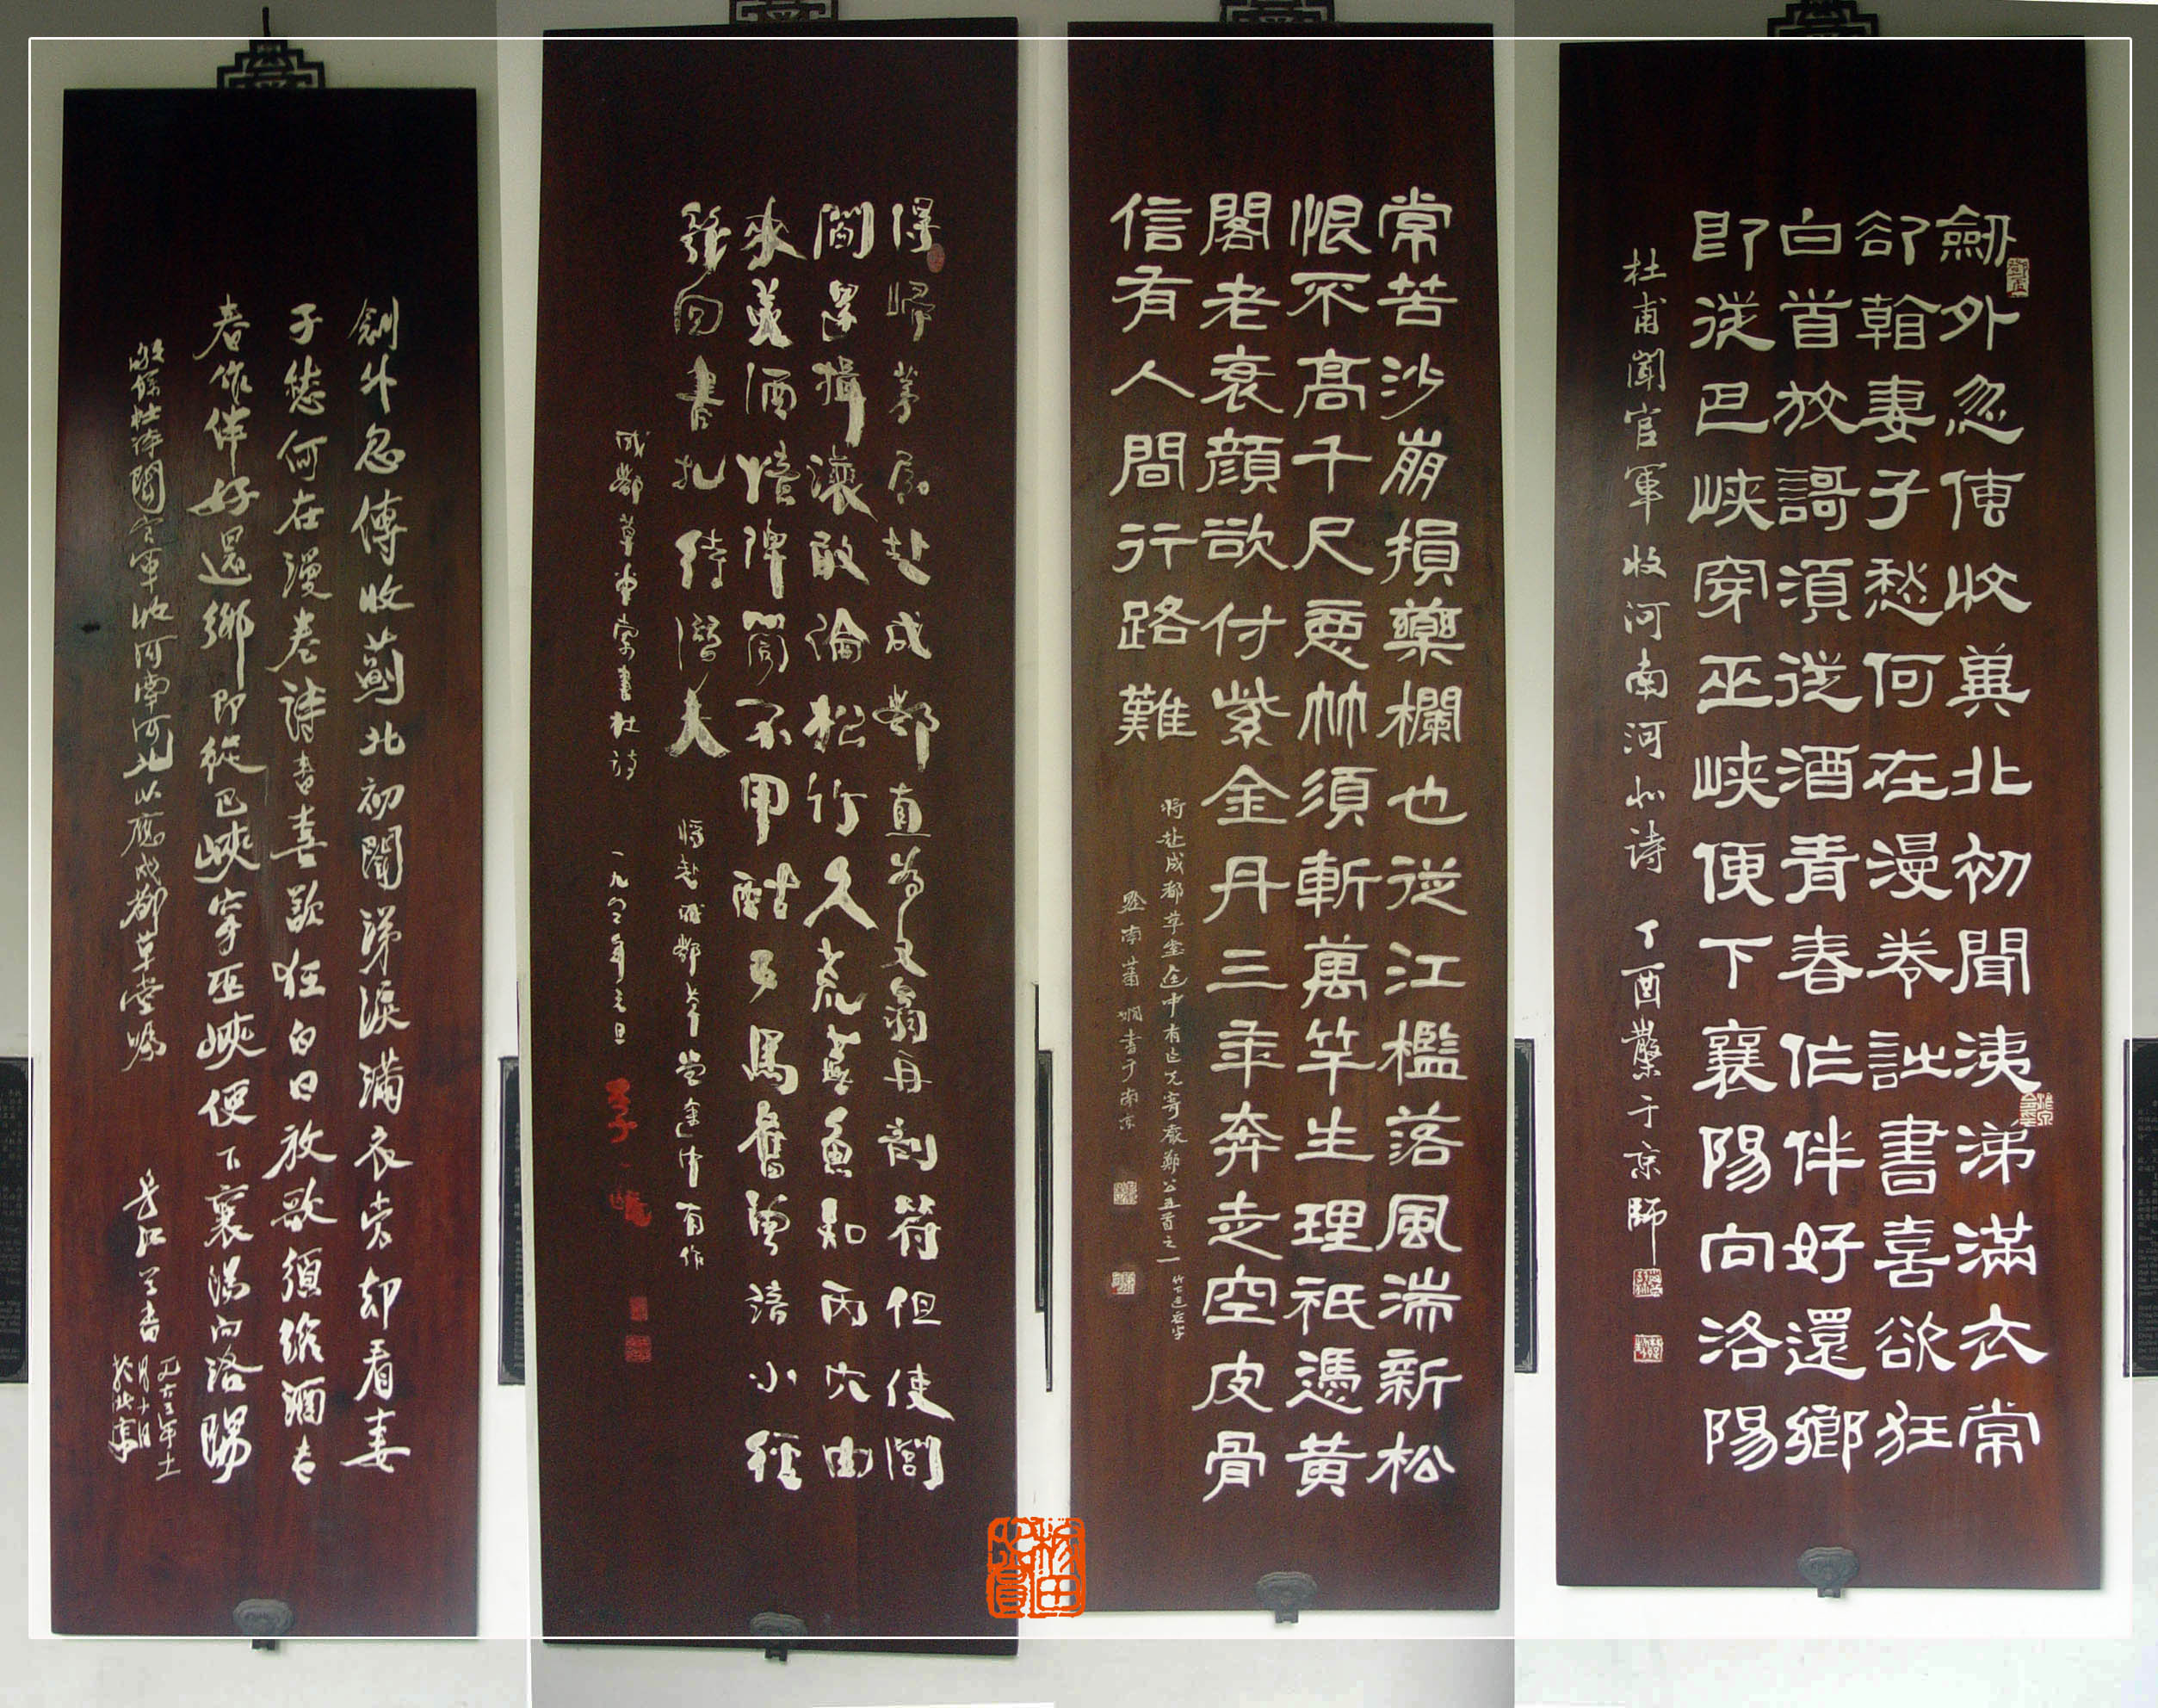 劒外忽傳收冀北初聞洟涕滿衣常
卻看妻子愁何在漫卷詩書喜欲狂
白首放謌須從酒青春作伴好還鄉
即從巴峽穿巫峽便下襄陽向洛陽
杜甫聞官軍收河南河北詩 丁酉散木于京師
常苦沙崩損藥欄也從江檻落風湍新松
恨不高千尺惡竹須斬萬竿生理祇憑黄
閣老衰顏欲付紫金丹三年奔走空皮骨
信有人間行路難
將赴成都草堂途中有作先寄嚴鄭公五首之一 竹上遺應字
黔南蕭嫻書于南京
得歸茅屋赴成都直為文翁再剖符但使閭
閻還揖讓敢論松竹久荒蕪魚知丙穴由
來美酒憶郫筒不用酤五馬舊曾諳小徑
幾回書札待潛夫
將赴成都草堂途中有作
成都草堂索書杜詩 元旦 李一氓
劍外忽傳收薊北初聞涕淚滿衣裳却看妻
子愁何在漫卷詩書喜欲狂白日放歌須縱酒青
春作伴好還鄉即從巴峽穿巫峽便下襄陽向洛陽
敬錄杜律聞官軍收河南河北以應成都草堂囑
長江學書